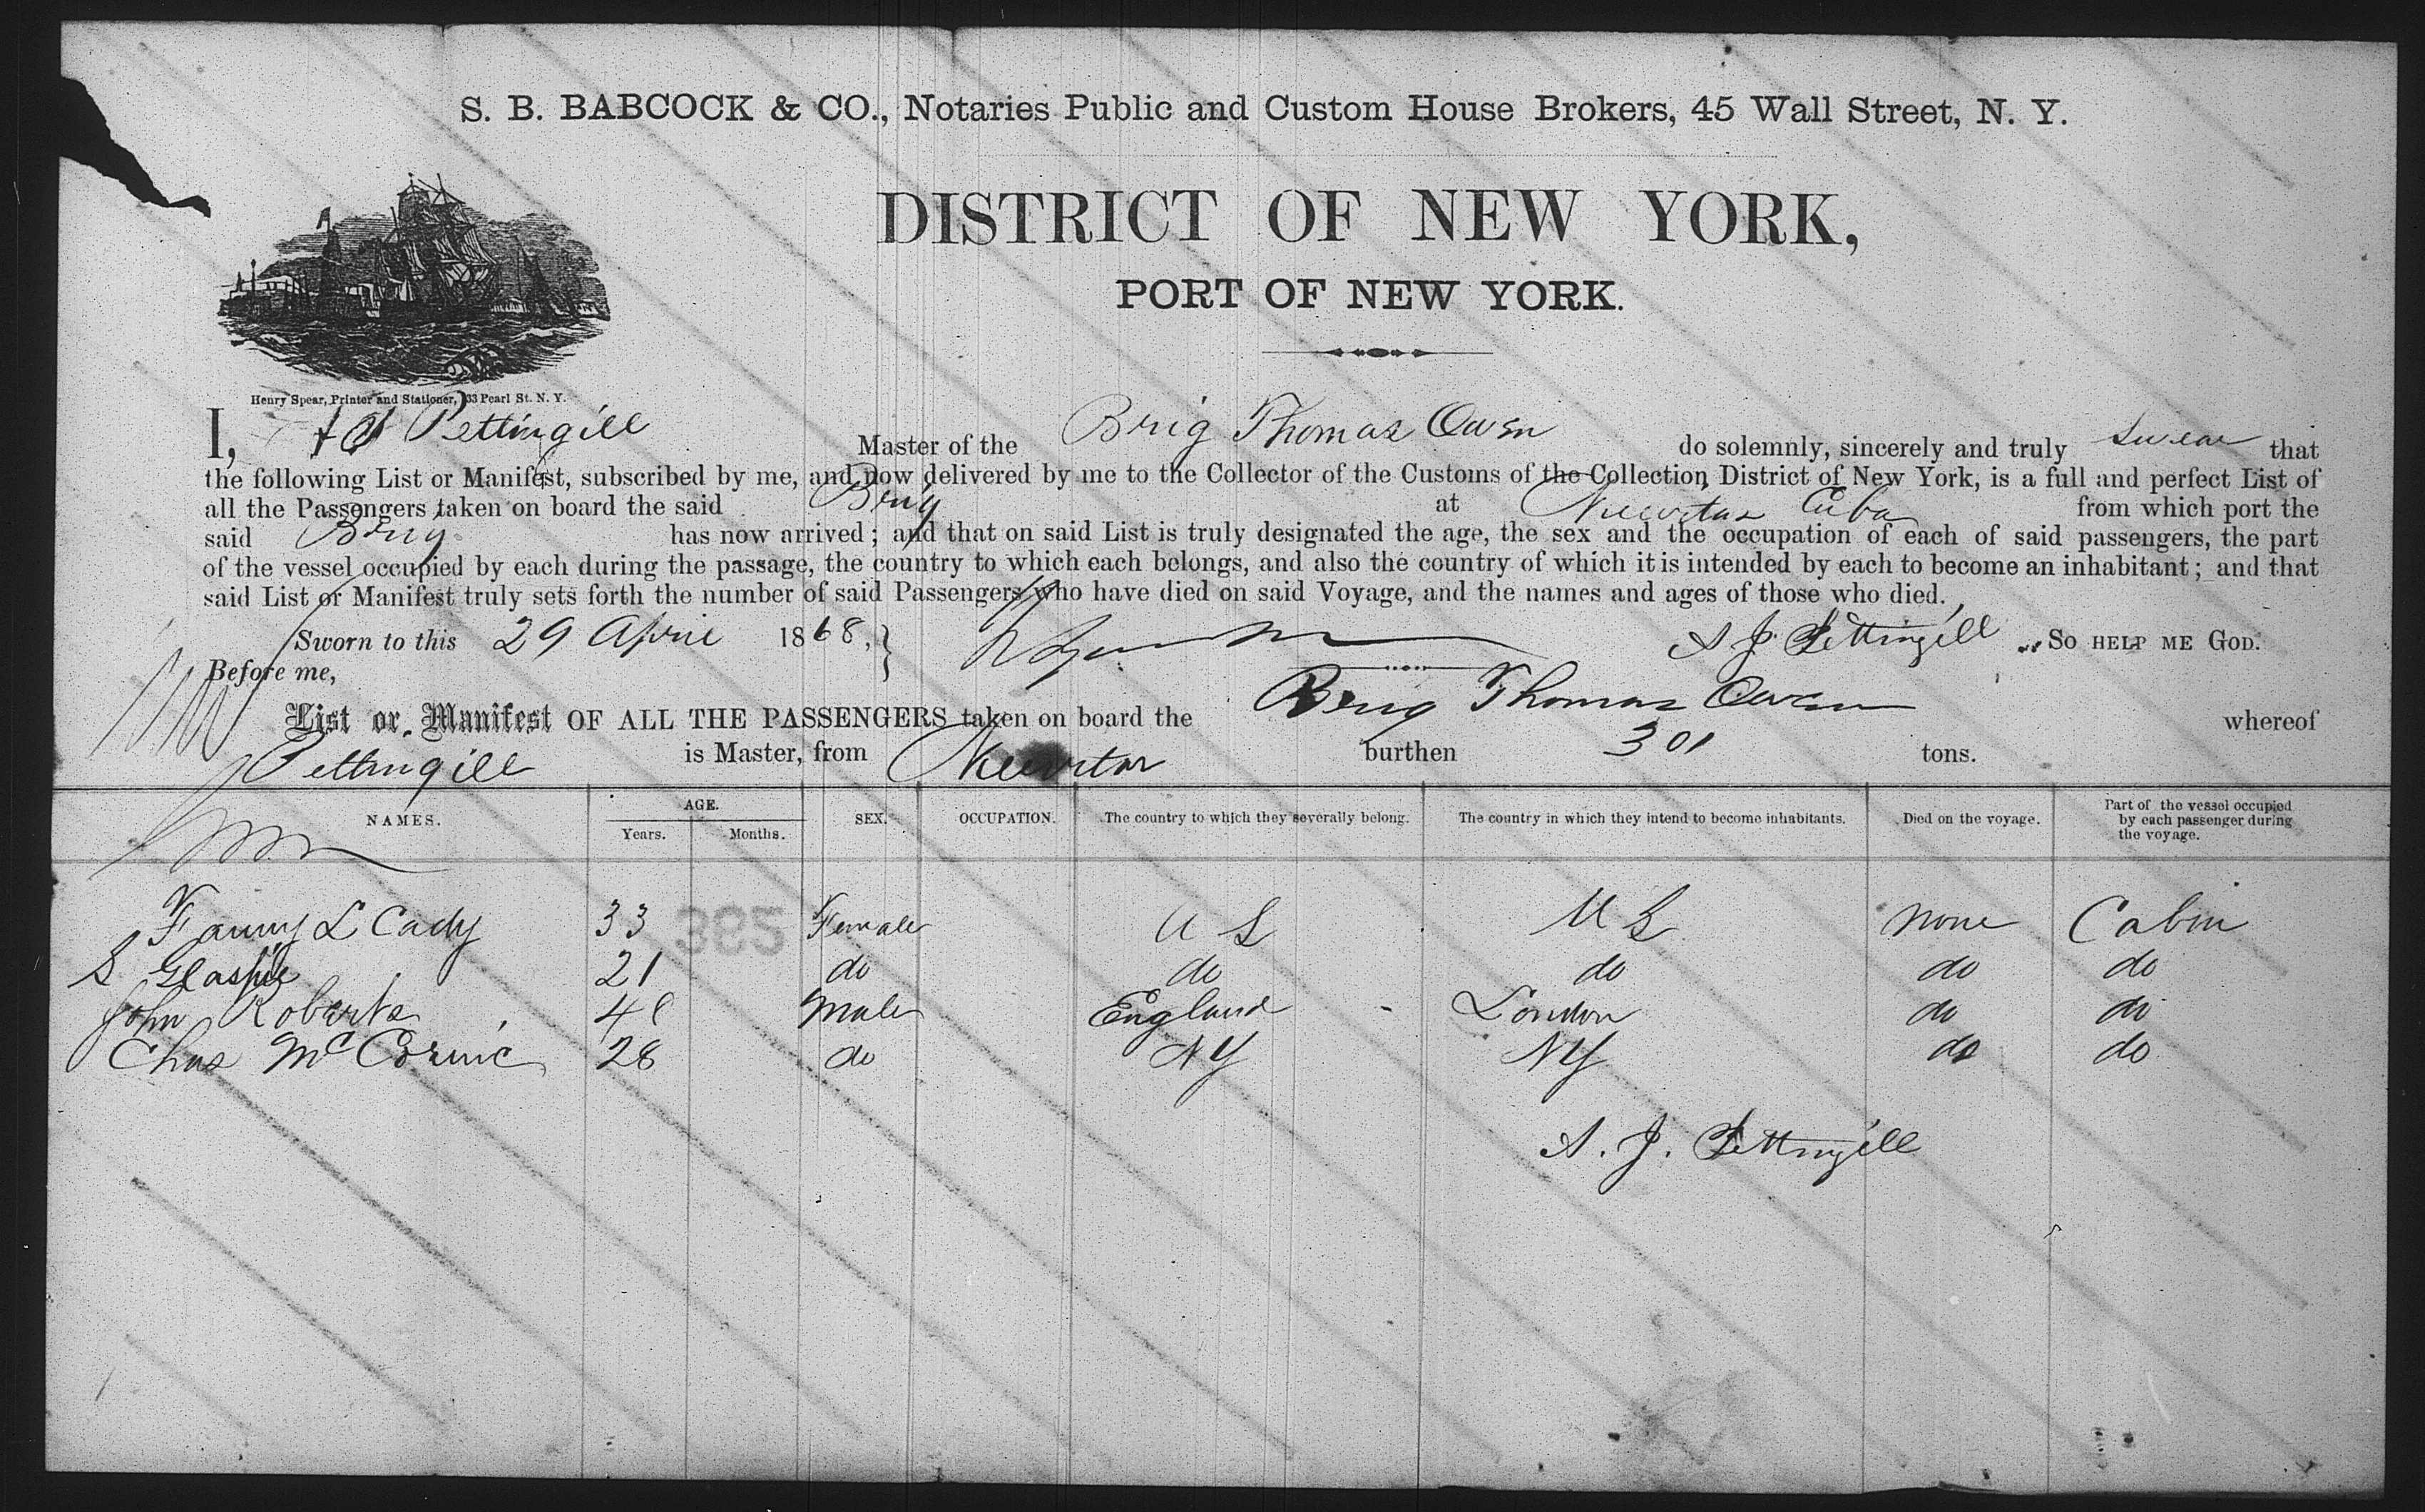 S. B. BABCOCK & CO., Notaries Public and Custom House Brokers, 45 Wall Street, N. Y.
DISTRICT OF NEW YORK,
PORT OF NEW YORK.
Henry Spear, Printer and Stationer, 133 Pearl St. N. Y.
I, Pettingill Master of the Brig Thomas Owen do solemnly, sincerely and truly swear that
the following List or Manifest, subscribed by me, and now delivered by me to the Collector of the Customs of the Collection District of New York, is a full and perfect List of
all the Passengers taken on board the said Brig at Nuevitas Cuba from which port the
said Brig has now arrived; and that on said List is truly designated the age, the sex and the occupation of each of said passengers, the part
of the vessel occupied by each during the passage, the country to which each belongs, and also the country of which it is intended by each to become an inhabitant; and that
said List or Manifest truly sets forth the number of said Passengers who have died on said Voyage, and the names and ages of those who died.
Sworn to this 29 April 1868, A J Pettingill So HELP ME GOD.
Before me,
List or Manifest OF ALL THE PASSENGERS taken on board the Brig Thomas Owen whereof
Pettingill is Master, from Nuevitas burthen 301 tons.
NAMES. AGE. Years. Months. SEX. OCCUPATION. The country to which they severally belong. The country in which they intend to become inhabitants. Died on the voyage. Part of the vessel occupied by each passenger during the voyage.
Fanny L Cady 33 Female U S U S none Cabin
S 21 do do do do do
John Roberts Male England - London do do
Chas McCormic 28 do NY NY do do
385
A. J. Pettingill